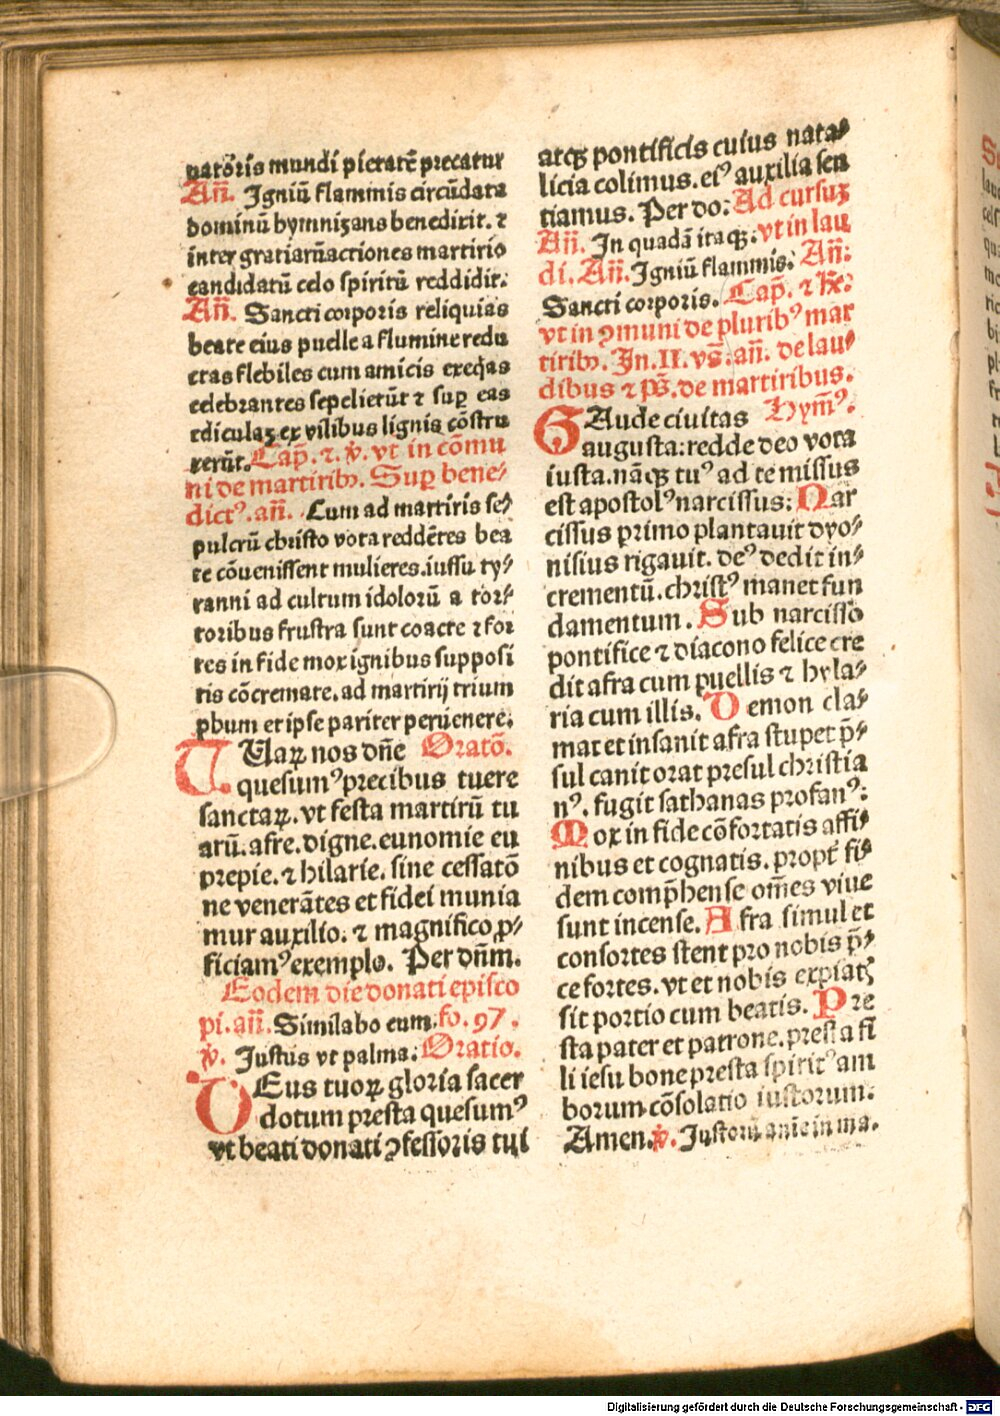 natoris mundi pietatē precatur
Añ. Igniū flammis circūdata
dominū hymnizans benedixit. ⁊
inter gratiarū acciones martirio
candidatū celo spiritū reddidit.
Añ. Sancti corporis reliquias
beate eius puelle a flumine redu
ctas flebiles cum amicis exeq̄as
celebrantes sepelierūt ⁊ suꝑ eas
ediculaꝫ ex vilibus lignis cōstru
xerūt. Cap̄. ⁊. v̄. vt in cōmu
ni de martiribꝰ. Suꝑ bene⸗
dictꝰ. añ. Cum ad martiris se⸗
pulcrū christo vota reddētes bea
te cōuenissent mulieres. iussu ty⸗
ranni ad cultum idolorū a tor⸗
toribus frustra sunt coacte ⁊ for
tes in fide mox ignibus supposi
tis cōcremate. ad martirij trium
phum et ipse pariter peruenere.
TUaꝝ nos dn̄e Oratō.
quesumꝰ precibus tuere
sanctaꝝ. vt festa martirū tu
arū. afre. digne. eunomie eu
prepie. ⁊ hilarie. sine cessatō
ne venerātes et fidei munia
mur auxilio. ⁊ magnifico ꝓ⸗
ficiamꝰ exemplo. Per dn̄m.
Eodem die donati episco
pi. añ. Similabo eum. fo. 97.
v̄. Justus vt palma. Oratio.
DEus tuoꝝ gloria sacer
dotum presta quesumꝰ
vt beati donati ꝯfessoris tui
atqꝫ pontificis cuius nata⸗
licia colimus. eiꝰ auxilia sen
tiamus. Per do: Ad cursuꝫ
Añ. In quadā itaqꝫ. vt in lau
di. Añ. Igniū flammis. Añ:
Sancti corporis. Cap̄. ⁊ R̄:
vt in ꝯmuni de pluribꝰ mar
tiribꝰ. In. II. vs̄: añ. de lau⸗
dibus ⁊ ps̄. de martiribus.
GAude ciuitas Hymꝰ.
augusta: redde deo vota
iusta. nāqꝫ tuꝰ ad te missus
est apostolꝰ narcissus: Nar
cissus primo plantauit dyo⸗
nisius rigauit. deꝰ dedit in⸗
crementū. christꝰ manet fun
damentum. Sub narcisso
pontifice ⁊ diacono felice cre
dit afra cum puellis ⁊ hyla⸗
ria cum illis. Demon cla⸗
mat et insanit afra stupet p̄⸗
sul canit orat presul christia
nꝰ. fugit sathanas profanꝰ:
Mox in fide cōfortatis affi⸗
nibus et cognatis. propt̄ fi⸗
dem comp̄hense om̄es viue
sunt incense. Afra simul et
consortes stent pro nobis p̄⸗
ce fortes. vt et nobis expiatꝫ
sit portio cum beatis. Pre
sta pater et patrone. presta fi
li iesu bone presta spiritꝰ am
borum cōsolatio iustorum.
Amen. v̄. Justorū anīe in ma.
Digitalisierung gefördert durch die Deutsche Forschungsgemeinschaft - DFG